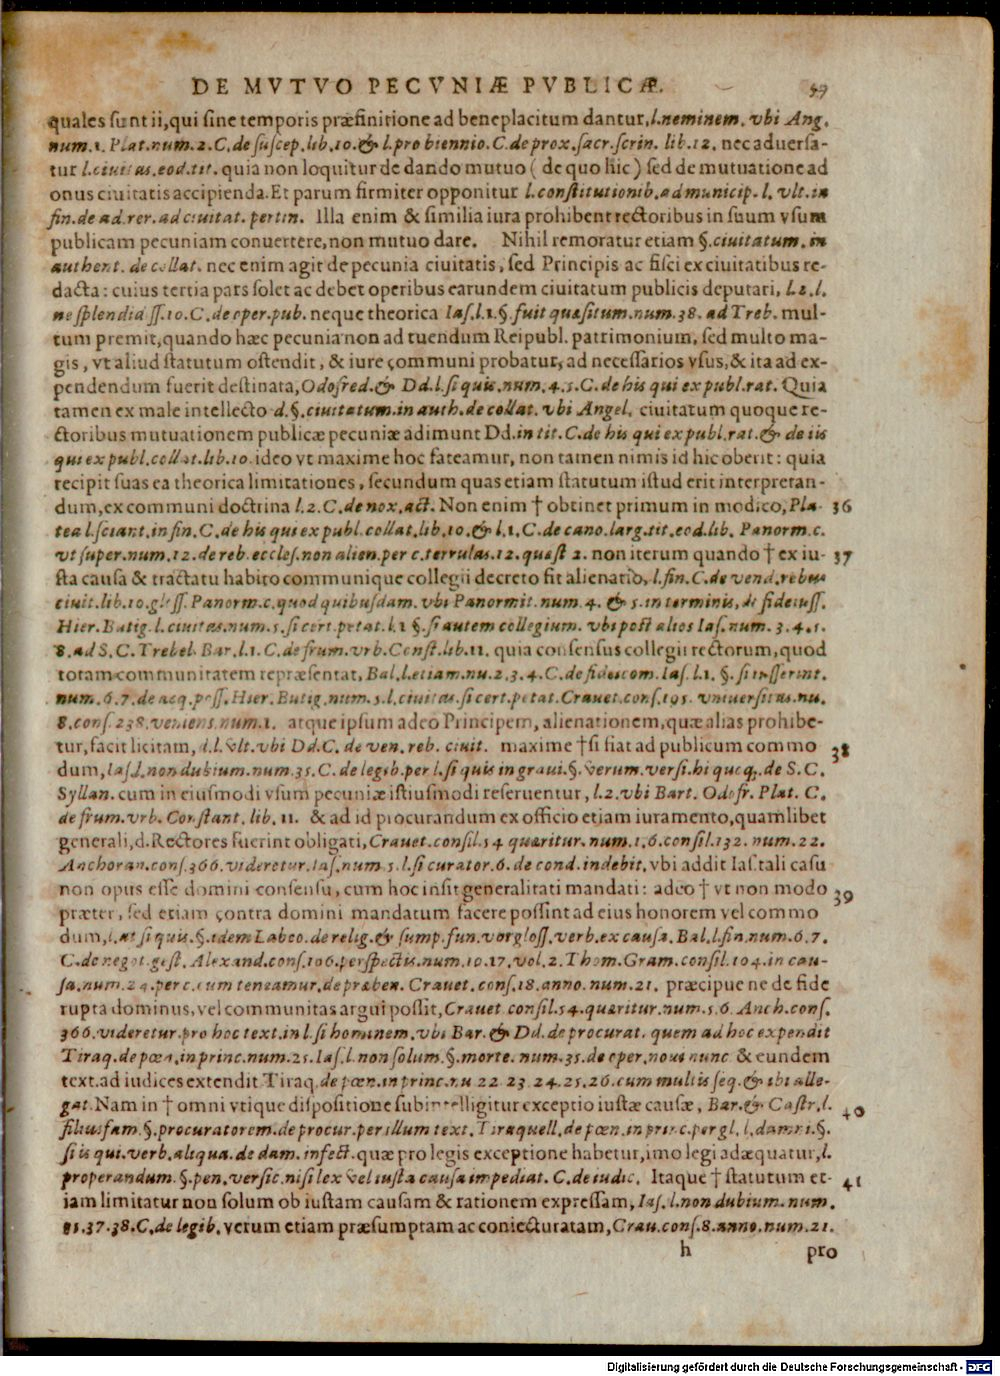 DE MVTVO PECVNIÆ PVBLICÆ. 57
quales sunt ii, qui sine temporis præfinitione ad beneplacitum dantur, l. neminem. vbi Ang.
num. 1. Plat. num. 2. C. de suscep. lib. 10. & l. pro biennio. C. de prox. sacr. scrin. lib. 12. nec aduersa-
tur l. ciuitas. eod. tit. quia non loquitur de dando mutuo (de quo hic) sed de mutuatione ad
onus ciuitatis accipienda. Et parum firmiter opponitur l. constitutionib. ad municip. l. vlt. in
fin. de ad. rer. ad ciuitat. pertin. Illa enim & similia iura prohibent rectoribus in suum vsum
publicam pecuniam conuertere, non mutuo dare. Nihil remoratur etiam §. ciuitatum. in
authent. de collat. nec enim agit de pecunia ciuitatis, sed Principis ac fisci ex ciuitatibus re-
dacta: cuius tertia pars solet ac debet operibus earundem ciuitatum publicis deputari, l. 2. l.
ne splendidiss. 10. C. de oper. pub. neque theorica Ias. l. 1. §. fuit quæsitum. num. 38. ad Treb. mul-
tum premit, quando hæc pecunia non ad tuendum Reipubl. patrimonium, sed multo ma-
gis, vt aliud statutum ostendit, & iure communi probatur, ad necessarios vsus, & ita ad ex-
pendendum fuerit destinata, Odofred. & Dd. l. si quis. num. 4. 5. C. de his qui ex publ. rat. Quia
tamen ex male intellecto d. §. ciuitatum. in auth. de collat. vbi Angel. ciuitatum quoque re-
ctoribus mutuationem publicæ pecuniæ adimunt Dd. in tit. C. de his qui ex publ. rat. & de iis
qui ex publ. collat. lib. 10. ideo vt maxime hoc fateamur, non tamen nimis id hic oberit: quia
recipit suas ea theorica limitationes, secundum quas etiam statutum istud erit interpretan-
dum, ex communi doctrina l. 2. C. de nox. act. Non enim † obtinet primum in modico, Pla- 36
tea l. sciant. in fin. C. de his qui ex publ. collat. lib. 10. & l. 1. C. de cano. larg. tit. eod. lib. Panorm. c.
vt super. num. 12. de reb. eccles. non alien. per c. terrulas. 12. quæst 2. non iterum quando † ex iu- 37
sta causa & tractatu habito communique collegii decreto fit alienatio, l. fin. C. de vend. rebus
ciuit. lib. 10. gloss. Panorm. c. quod quibusdam. vbi Panormit. num. 4. & 5. in terminis, de fideiuss.
Hier. Butig. l. ciuitas. num. 5. si cert. petat. l. 1 §. si autem collegium. vbi post alios Ias. num. 3. 4. 5.
8. ad S. C. Trebel. Bar. l. 1. C. de frum. vrb. Const. lib. 11. quia consensus collegii rectorum, quod
totam communitatem repræsentat, Bal. l. etiam. nu. 2. 3. 4. C. de fideicom. Ias. l. 1. §. si inscrint.
num. 6. 7. de acq. poss. Hier. Butig. num. 5. l. ciuitas. si cert. petat. Crauet. cons. 105. vniuersitas. nu.
8. cons. 238. veniens. num. 1. atque ipsum adeo Principem, alienationem, quæ alias prohibe-
tur, facit licitam, d. l. vlt. vbi Dd. C. de ven. reb. ciuit. maxime † si fiat ad publicum commo 38
dum, Ias. l. non dubium. num. 35. C. de legib. per l. si quis in graui. §. verum. versi. hi quoq;. de S. C.
Syllan. cum in eiusmodi vsum pecuniæ istiusmodi reseruentur, l. 2. vbi Bart. Odofr. Plat. C.
de frum. vrb. Constant. lib. 11. & ad id procurandum ex officio etiam iuramento, quamlibet
generali, d. Rectores fuerint obligati, Crauet. consil. 54 quæritur. num. 1. 6. consil. 132. num. 22.
Anchoran. cons. 366. videretur. Ias. num. 5. l. si curator. 6. de cond. indebit, vbi addit Ias. tali casu
non opus esse domini consensu, cum hoc insit generalitati mandati: adeo † vt non modo 39
præter, sed etiam contra domini mandatum facere possint ad eius honorem vel commo
dum, l. at si quis. §. idem Labeo. de relig. & sump. fun. vbi gloss. verb. ex causa. Bal. l. fin. num. 6. 7.
C. de negot. gest. Alexand. cons. 106. perspectis. num. 10. 17. vol. 2. Thom. Gram. consil. 104. in cau-
sa. num. 24. per c. cum teneamur. de præben. Crauet. cons. 18. anno. num. 21. præcipue ne de fide
rupta dominus, vel communitas argui possit, Crauet consil. 54. quæritur. num. 5. 6. Anch. cons.
366. videretur. pro hoc text. in l. si hominem. vbi Bar. & Dd. de procurat. quem ad hoc expendit
Tiraq. de pœn. in princ. num. 25. Ias. l. non solum. §. morte. num. 35. de oper. noui nunc & eundem
text. ad iudices extendit Tiraq. de pœn. in princ. nu 22 23. 24. 25. 26. cum multis seq. & ibi alle-
gat. Nam in † omni vtique dispositione subintelligitur exceptio iustæ causæ, Bar. & Castr. l. 40
filiusfam. §. procuratorem. de procur. per illum text. Tiraquell. de pœn. in princ. per gl. l. damni. §.
si is qui. verb. aliqua. de dam. infect. quæ pro legis exceptione habetur, imo legi adæquatur, l.
properandum. §. pen. versic. nisi lex vel iusta causa impediat. C. de iudic. Itaque † statutum et- 41
iam limitatur non solum ob iustam causam & rationem expressam, Ias. l. non dubium. num.
31. 37. 38. C. de legib. verum etiam præsumptam ac coniecturatam, Crau. cons. 8. anno. num. 21.
h pro
Digitalisierung gefördert durch die Deutsche Forschungsgemeinschaft - DFG